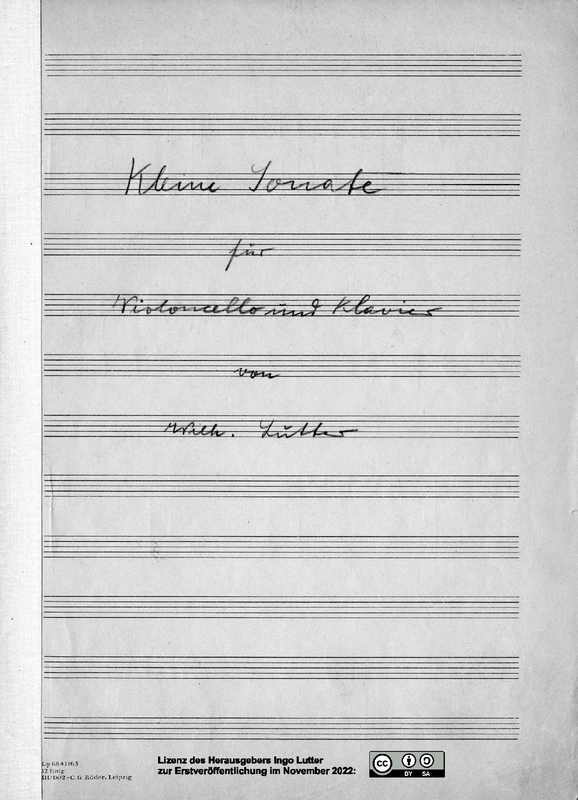 Kleine Sonate
für
Violoncello und Klavier
von
Wilh. Lutter
Lp 6841/63
12 linig
III/18/2–C. G. Röder, Leipzig
Lizenz des Herausgebers Ingo Lutter
zur Erstveröffentlichung im November 2022:
cc
BY SA